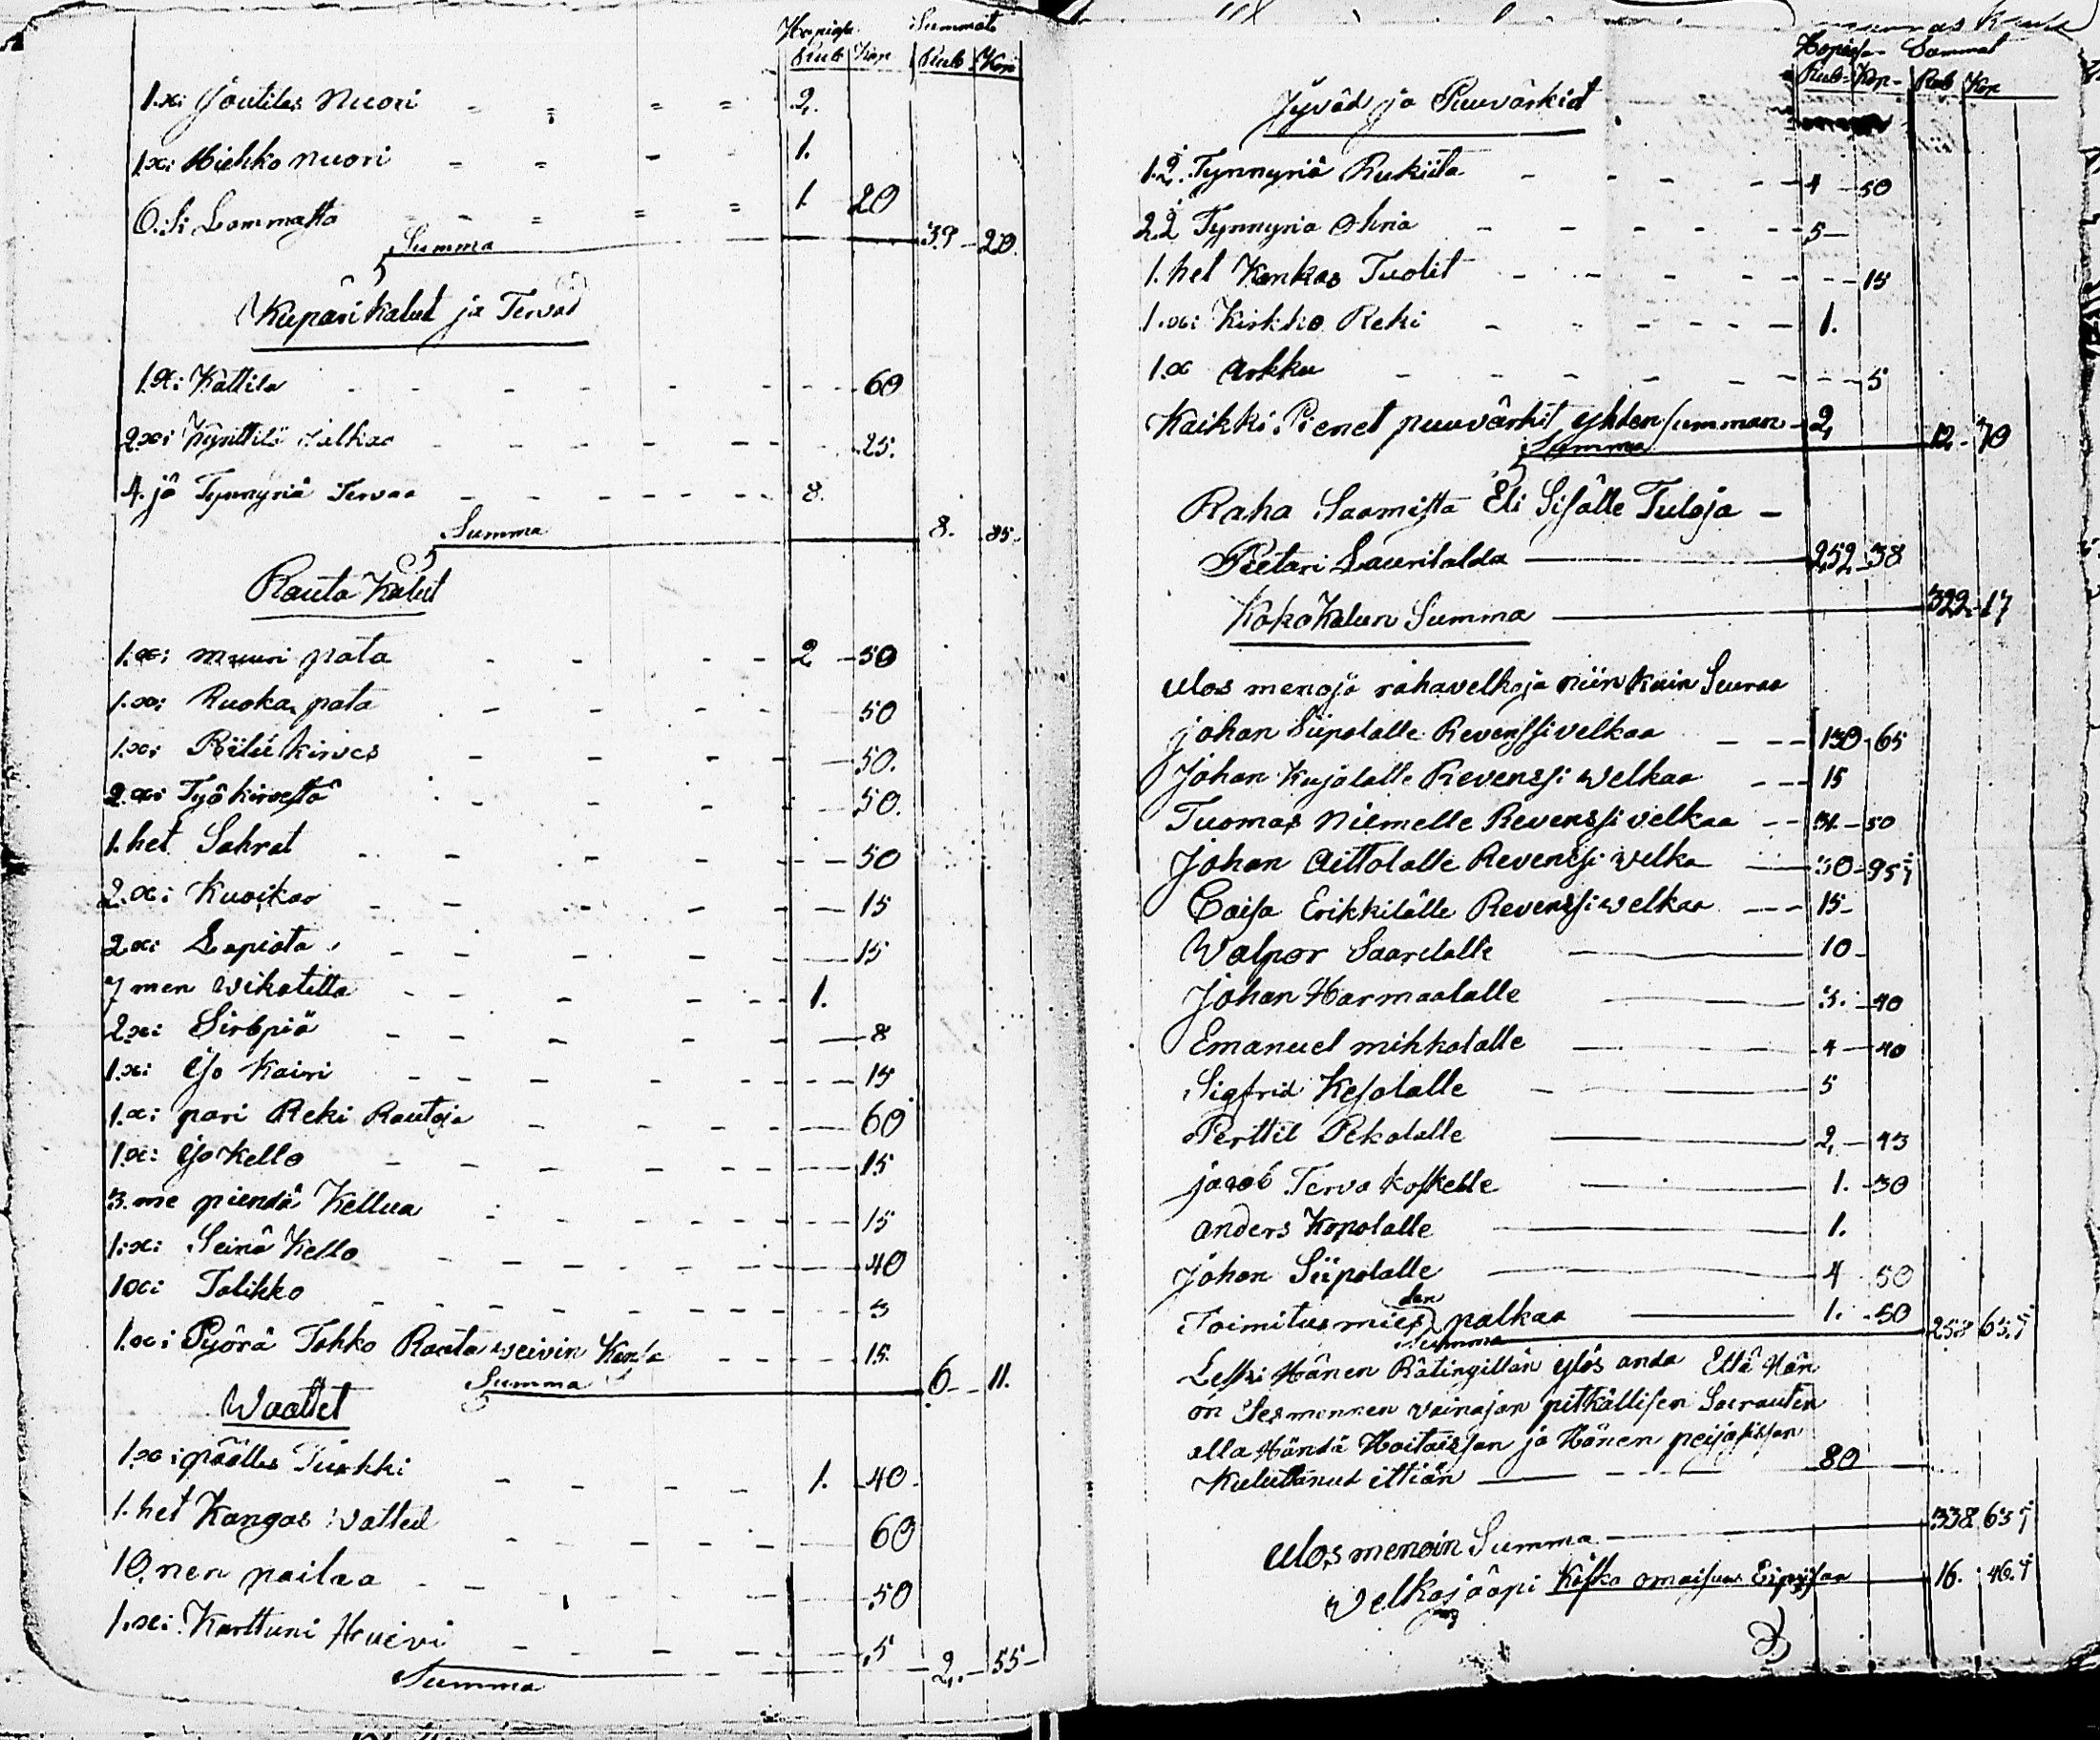 Hopiasa Summat
Rub Kop Rub Kop
1.x: Joutilas Nuori 2.
1.x: Hiehko nuori 1.
6.si Lammasta 1. 20
Summa 39 20
Kupari kalut ja Tervat
1.x: Kattila 60
2.x: Kynttilä jalkaa 25.
4.jä Tynnyriä Tervaa 8.
Summa 8. 85.
Rauta Kalut
1.x: muuri pata 2 50
1.x: Ruoka pata 50
1.x: Piilu kirves 50.
2.x: Työ kirvestä 50.
1.het Sahrat 50
2.x: Kuokaa 15
2.x: Lapiota 15
7 men wikatetta 1.
2.x: Sirppiä 8
1.x: iso Kairi 15
1.x: pari Reki Rautoja 60
1.x: iso Kello 15
3.me piendä Kellua 15
1:x: Seinä Kello 40
1x: Talikko 3
1.x: Pyörä Tahko Rauta weivin Kansa 15.
Summa 6 11.
Waattet
1.x: päällis Turkki 1. 40
1.het Kangas Watted 60
10.nen paitaa 50
1.x: Karttuni Huivi 5
Summa 2. 55
Hopiasa Summat
Rub Kop Rub Kop
Jyväd ja Puuvärkid
1.2 Tynnyriä Rukiita 4 50
2.2 Tynnyria ohria 5
1.het Kankas Tuolit 15
1.x: Kirkko Reki 1.
1.x arkku 5
Kaikki Pienet puuvärkit yhten summan 2
Summa 12 70
Raha Saamista Eli Sisälle Tuloja
Pietari Laurilalda 252 38
Koko Kalun Summa 322 17
ulos menojä rahavelkoja niin kuin Seuraa
johan Siipolalle Revenssivelkaa 130 65
Johan Kujalalle Revenssi welkaa 15
Tuomas Niemelle Revenssi velkaa 31. 50
Johan Aittolalle Revenssi welka 30 95
Caisa Erikkilälle Revenssi welkaa 15
Walpor Saarelalle 10
Johan Harmaalalle 3. 40
Emanuel mikkolalle 4 40
Sigfrid Kesolalle 5
Perttil Pekolalle 2, 43
jacob Terva koskelle 1. 30
anders Kopolalle 1.
Johan Siipolalle 4 50
Toimitus miesden palkaa 1. 50
Summa 258 63
Leski Hänen Rätingillän ylös anda Että Hän
on Edesmennen vainajan pitkällisen Sairautin
alla Händä Hoitaissan ja Hänen peijaissan
Kuluttanut ittiän 80
ulos menoin Summa 338 63
velkaj ääpi Koska omaisuus Ei 16. 46.